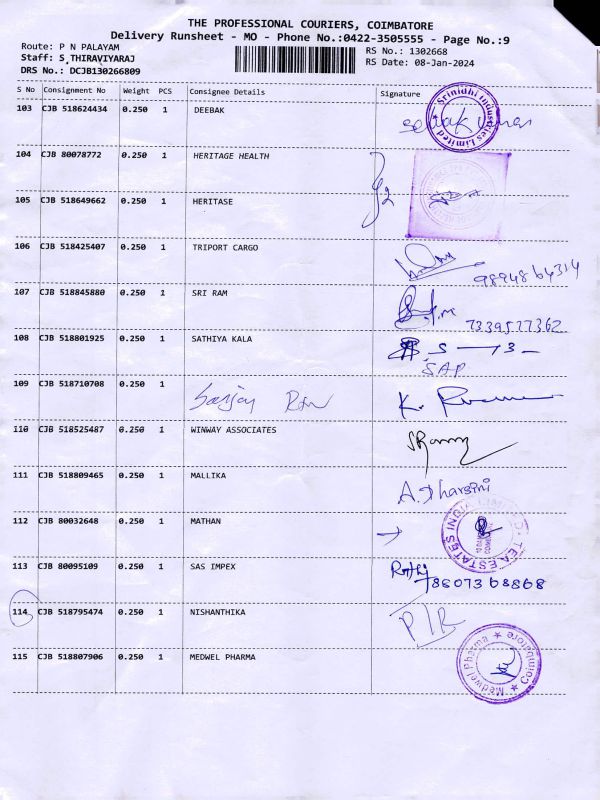 THE PROFESSIONAL COURIERS, COIMBATORE
Delivery Runsheet - MO - Phone No.:0422-3505555 - Page No.:9
Route: P N PALAYAM
RS No.: 1302668
Staff: S THIRAVIYARAJ
RS Date: 08-Jan-2024
DRS No.: DCJB130266809
S No Consignment No Weight PCS Consignee Details Signature
103 CJB 518624434 0.250 1 DEEBAK
Srinidhi Industries Limited
104 CJB 80078772 0.250 1 HERITAGE HEALTH
105 CJB 518649662 0.250 1 HERITASE
106 CJB 518425407 0.250 1 TRIPORT CARGO
9894864314
107 CJB 518845880 0.250 1 SRI RAM
7339577362
108 CJB 518801925 0.250 1 SATHIYA KALA
SAP
109 CJB 518710708 0.250 1 Sanjay
110 CJB 518525487 0.250 1 WINWAY ASSOCIATES
111 CJB 518809465 0.250 1 MALLIKA A. Dharsini
112 CJB 80032648 0.250 1 MATHAN
TEA ESTATES INDIA LIMITED
113 CJB 80095109 0.250 1 SAS IMPEX
114 CJB 518795474 0.250 1 NISHANTHIKA P/R
115 CJB 518807906 0.250 1 MEDWEL PHARMA
Medwel Pharma ★ Coimbatore ★